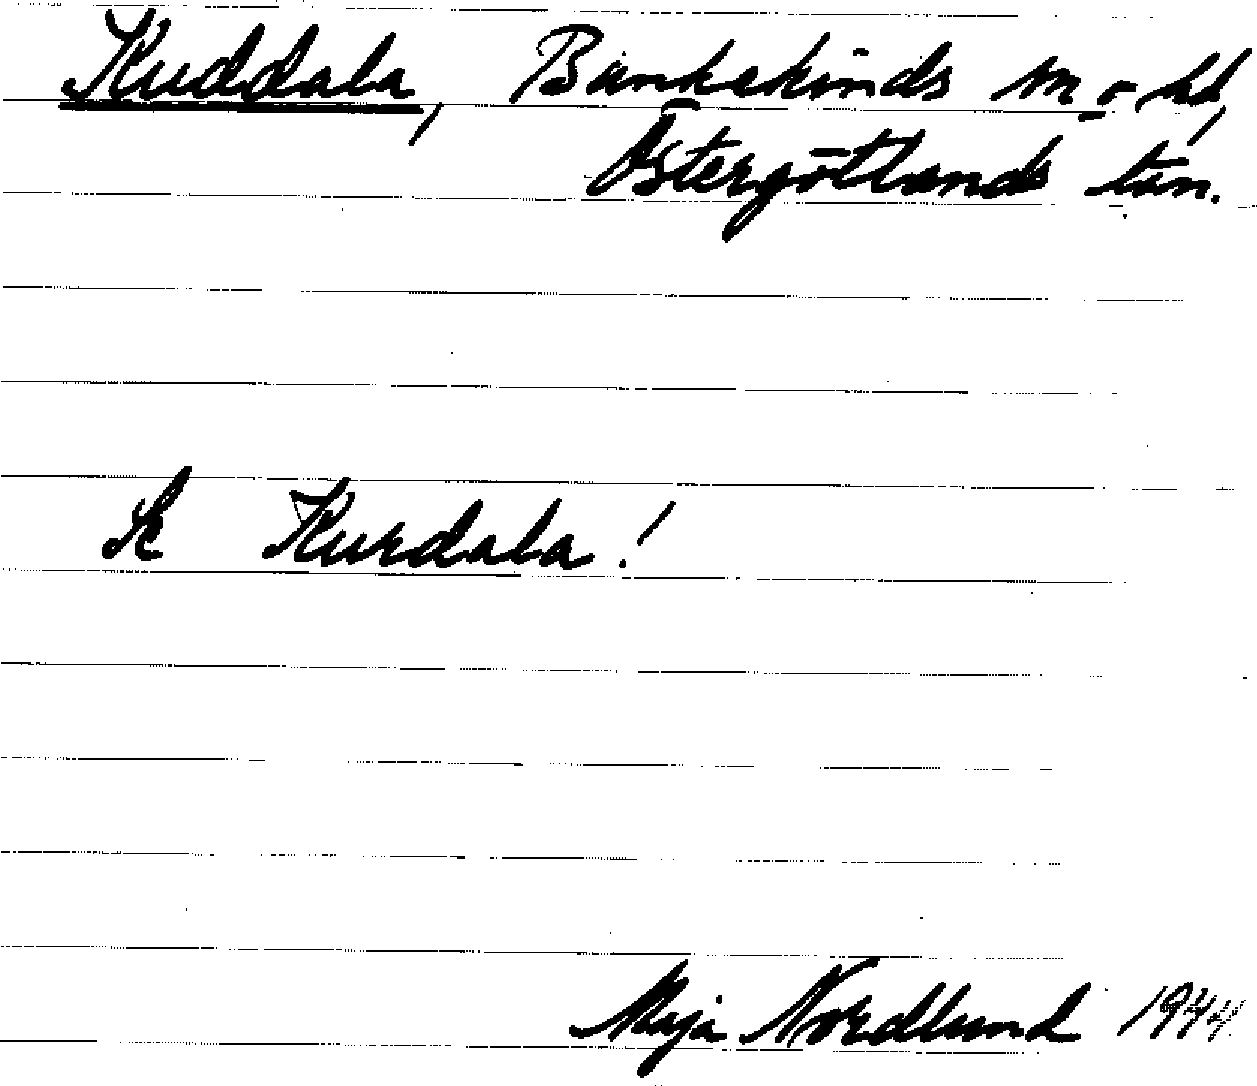 Kuddala, Bankekinds sn o hd,
Östergötlands län.
Se Kurdala!
Maja Nordlund 1944.